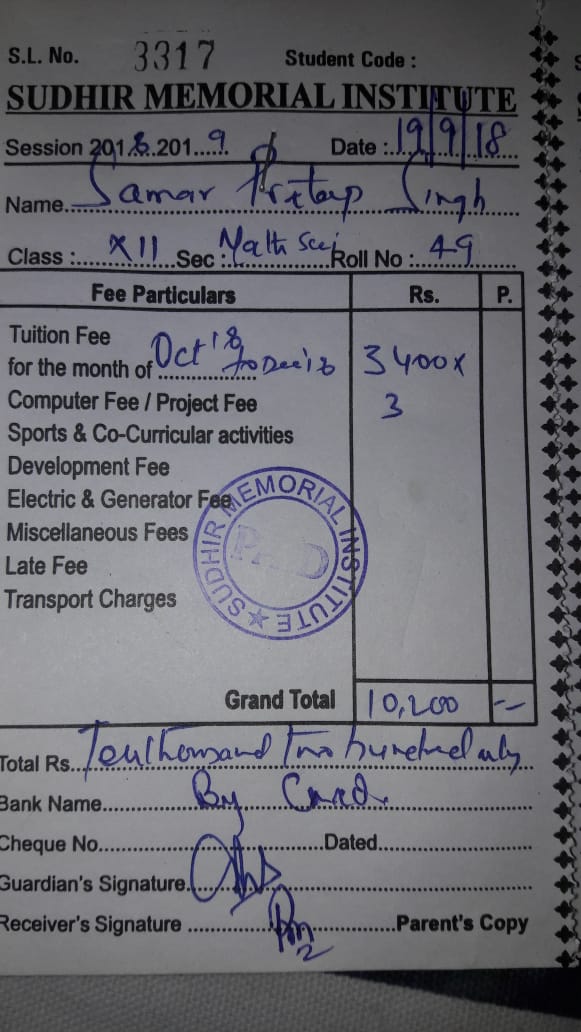 S.L. No. 3317 Student Code :
SUDHIR MEMORIAL INSTITUTE
Session 2018.2019 Date : 19/9/18
Name Samar Pratap Singh
Class : XII Sec : Math Sci Roll No : 49
Fee Particulars Rs. P.
Tuition Fee
for the month of Oct'18 to Dec'18 3400x
Computer Fee / Project Fee 3
Sports & Co-Curricular activities
Development Fee
Electric & Generator Fee
Miscellaneous Fees
Late Fee
Transport Charges
SUDHIR MEMORIAL INSTITUTE
PAID
Grand Total 10,200 --
Total Rs. Ten thousand two hundred only
Bank Name By Card
Cheque No. Dated
Guardian's Signature
Receiver's Signature Parent's Copy